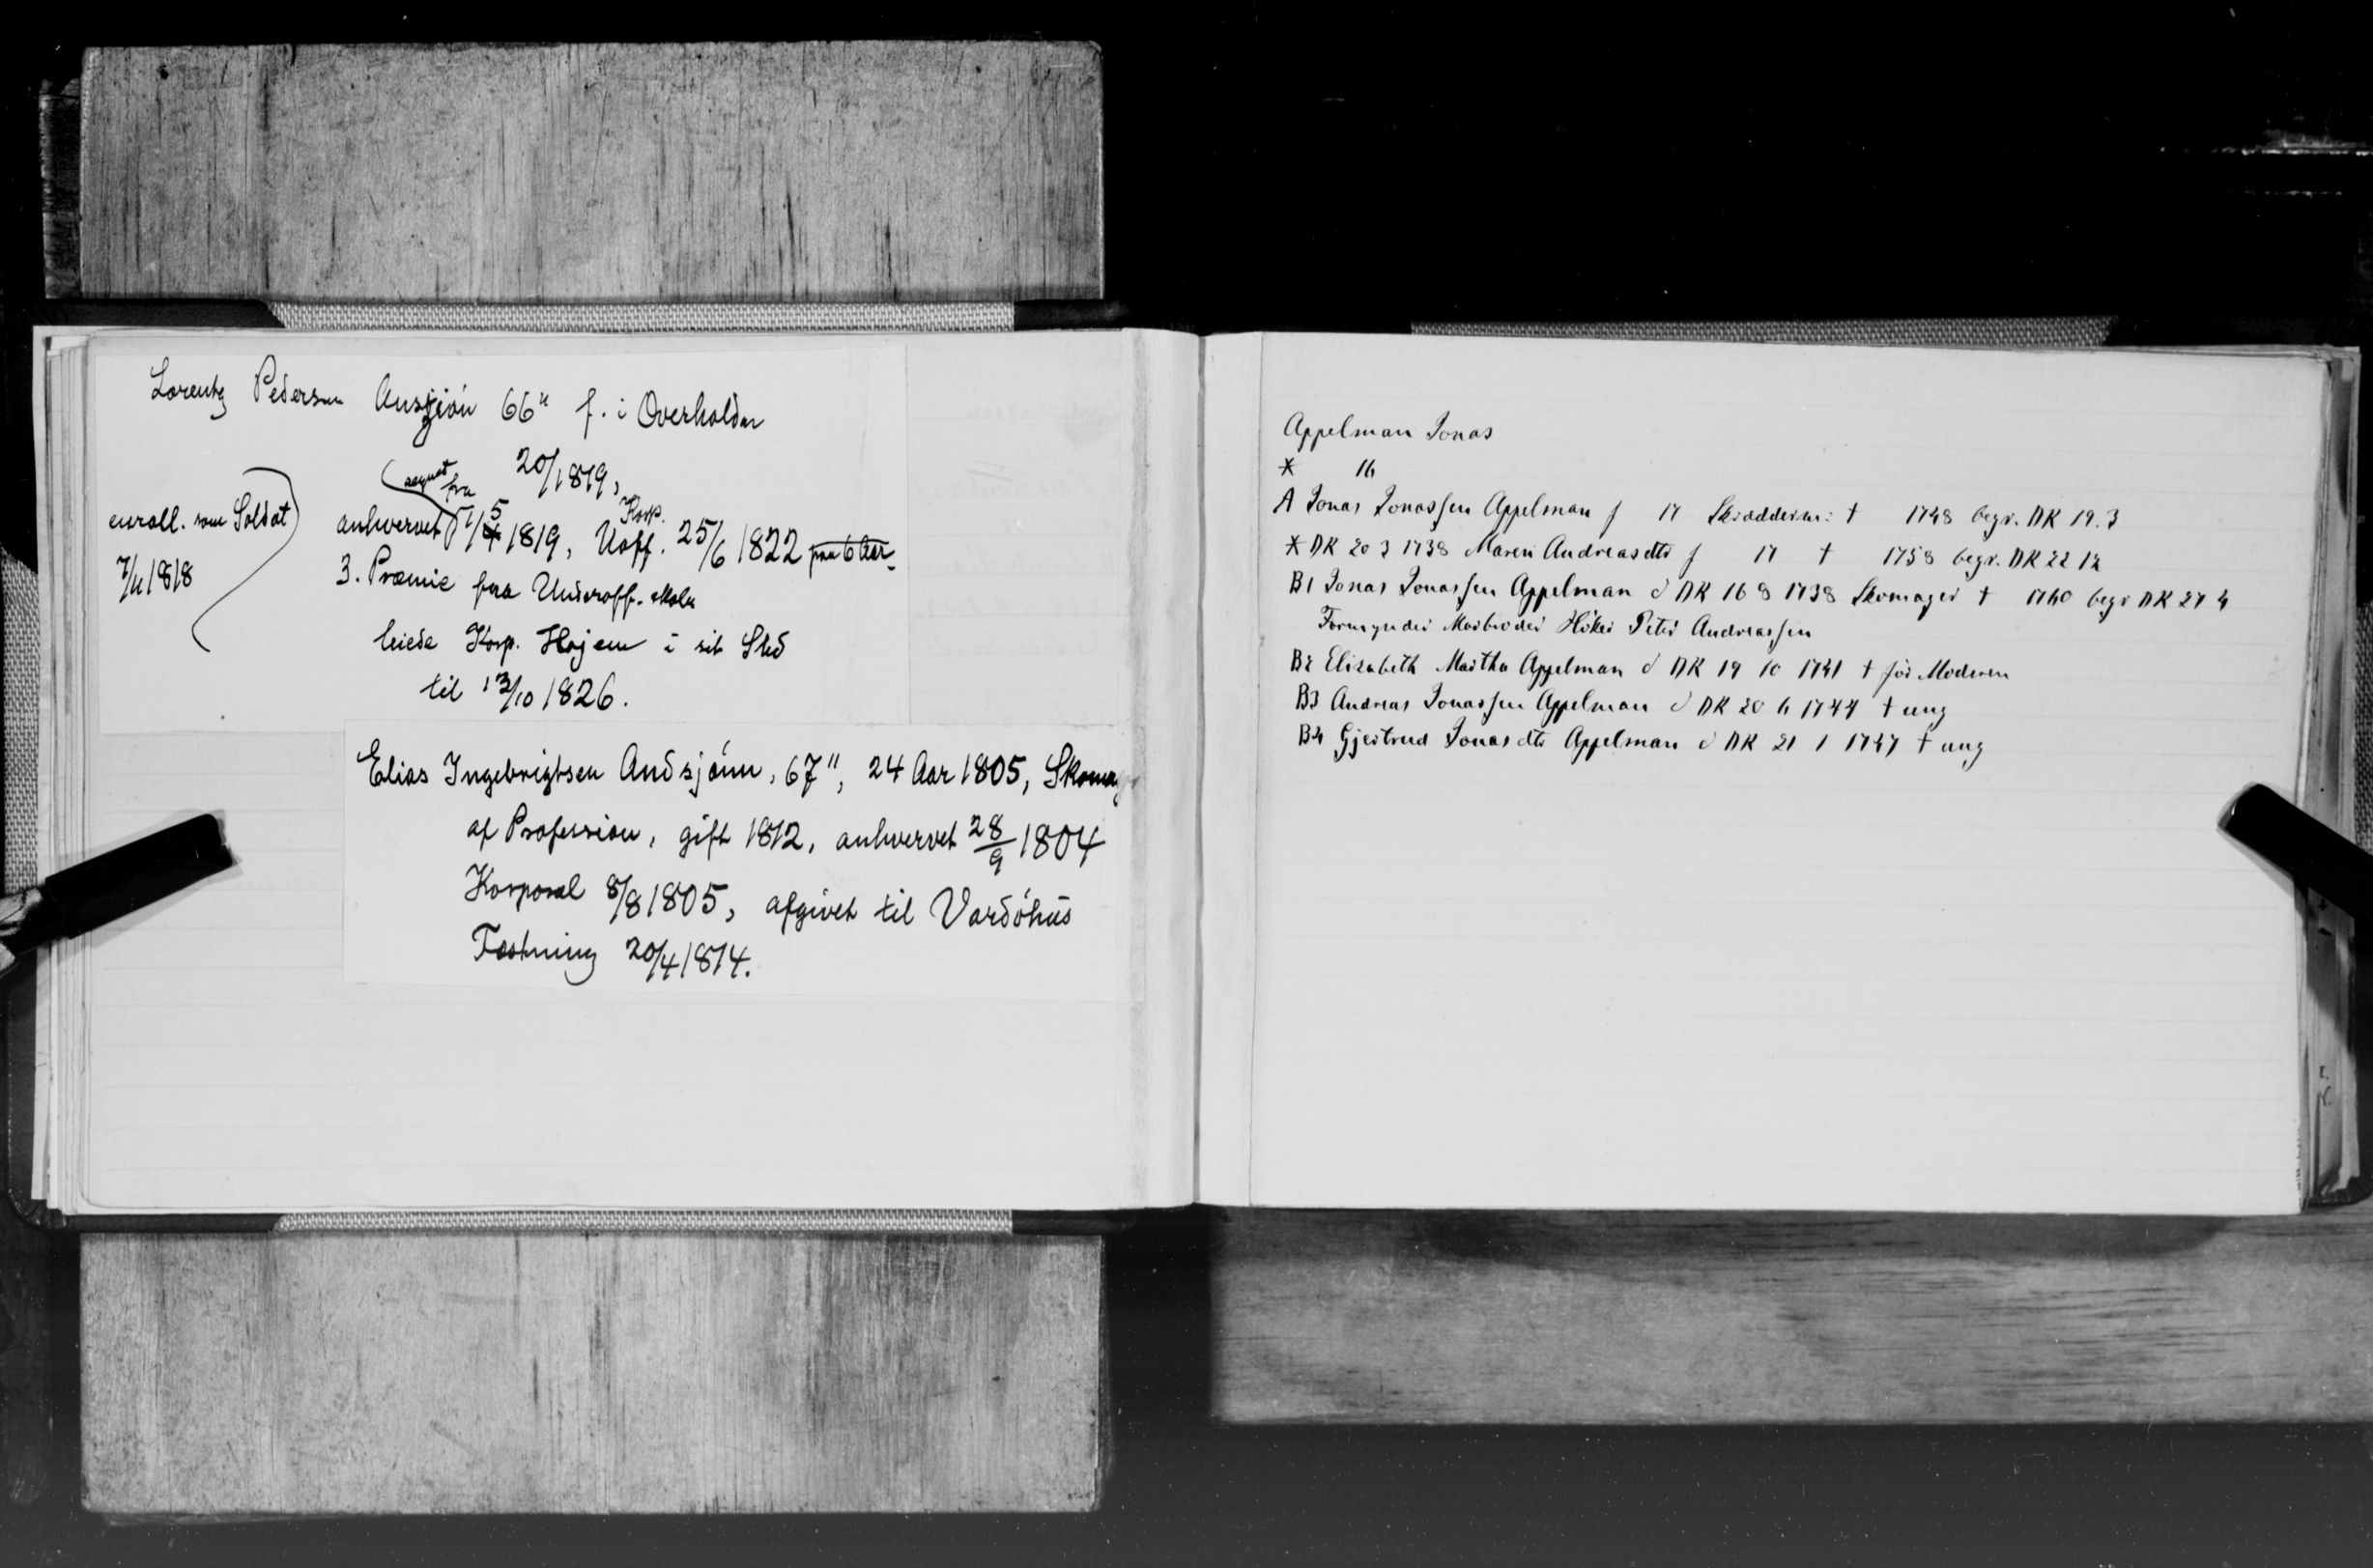 Lorentz Pedersen Ausjön 66" f. i Overhalden
regnet fra 20/1 1819,
enroll. som Soldat
7/11 1818
anhvervet 1/5 1819, Uoff. Korp. 25/6 1822 paa 6 Aar
3. Præmie fra Underoff. skole
leiede Korp. Hojem i sit Sted
til 13/10 1826.
Elias Ingebrigtsen Andsjönn, 67", 24 Aar 1805, Skomag
af Profession, gift 1812, anhvervet 28/9 1804
Korporal 8/8 1805, afgivet til Vardöhus
Fæstning 20/4 1814.
Appelman Jonas
* 16
A Jonas Jonassen Appelman f 17 Skrædderm: † 1748 begr. DK 19.3
* DK 20 3 1738 Maren Andreasdtr f 17 † 1758 begr. DK 22 12
B1 Jonas Jonassen Appelman d DK 16 8 1738 Skomager † 1760 begr DK 27 4
Formynder Morbroder Höker Peter Andreassen
B2 Elisabeth Martha Appelman d DK 19 10 1741 † för Moderen
B3 Andreas Jonassen Appelman d DK 20 6 1744 † ung
B4 Gjertrud Jonasdtr Appelman d DK 21 1 1747 † ung